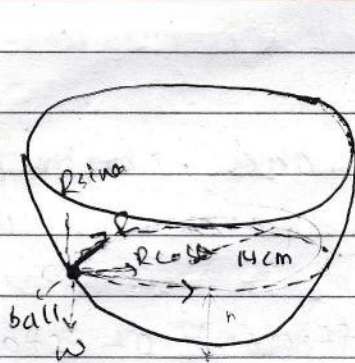 Rsinθ
R
Rcosθ 14cm
h
ball
W